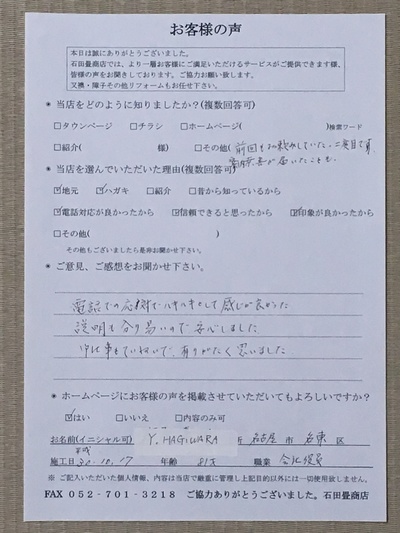 お客様の声
本日は誠にありがとうございました。
石田畳商店では、より一層お客様にご満足いただけるサービスがご提供できます様、
皆様の声をお聞きしております。ご協力お願い致します。
又襖・障子その他リフォームもお任せ下さい。
* 当店をどのように知りましたか？(複数回答可)
□タウンページ □チラシ □ホームページ( )検索ワード
□紹介( 様) □その他( 前回も
* 当店を選んでいただいた理由(複数回答可)
☑地元 ☑ハガキ □紹介 □昔から知っているから
☑電話対応が良かったから ☑信頼できると思ったから ☑印象が良かったから
□その他( )
その他もございましたら是非お聞かせ下さい。
* ご意見、ご感想をお聞かせ下さい。
電話での応対でハキハキとして感じが良かった
説明も分り易いので安心しました
仕事もていねいで ありがたく思いました
* ホームページにお客様の声を掲載させていただいてもよろしいですか？
☑はい □いいえ □内容のみ可
お名前(イニシャル可) Y. HAGIWARA 名古屋 市 名東 区
施工日 平成 30.10.17 年齢 81才 職業 会社役員
※ ご記入いただいた個人情報、内容は当店で厳重に管理し上記目的以外には一切使用致しません。
FAX 052-701-3218 ご協力ありがとうございました。石田畳商店